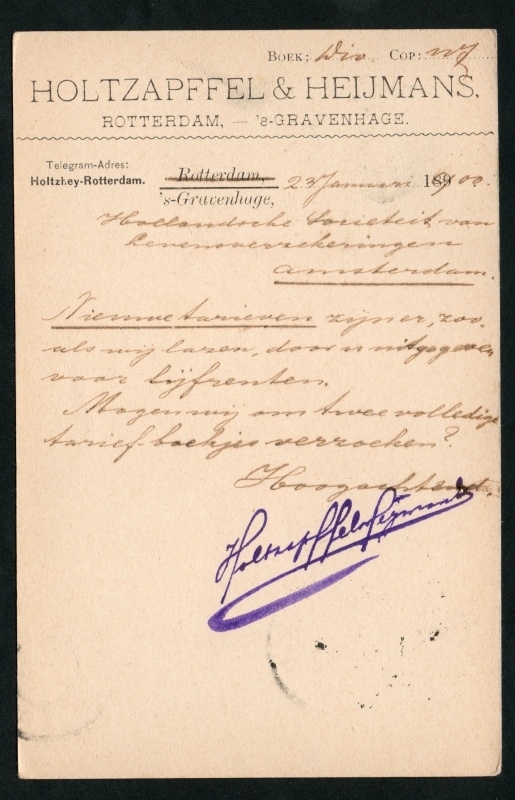 BOEK: Div. COP: wf
HOLTZAPFFEL & HEIJMANS,
ROTTERDAM, — 's-GRAVENHAGE.
Telegram-Adres:
Holtzhey-Rotterdam.
Rotterdam,
's-Gravenhage, 23 Januari 1900.
Hollandsche Societeit van
Levensverzekeringen
Amsterdam.
Nieuwe tarieven zijn er, zoo-
als wij lazen, door u uitgegeven
voor lijfrenten.
Mogen wij om twee volledige
tarief-boekjes verzoeken?
Hoogachtend,
Holtzapffel & Heijmans